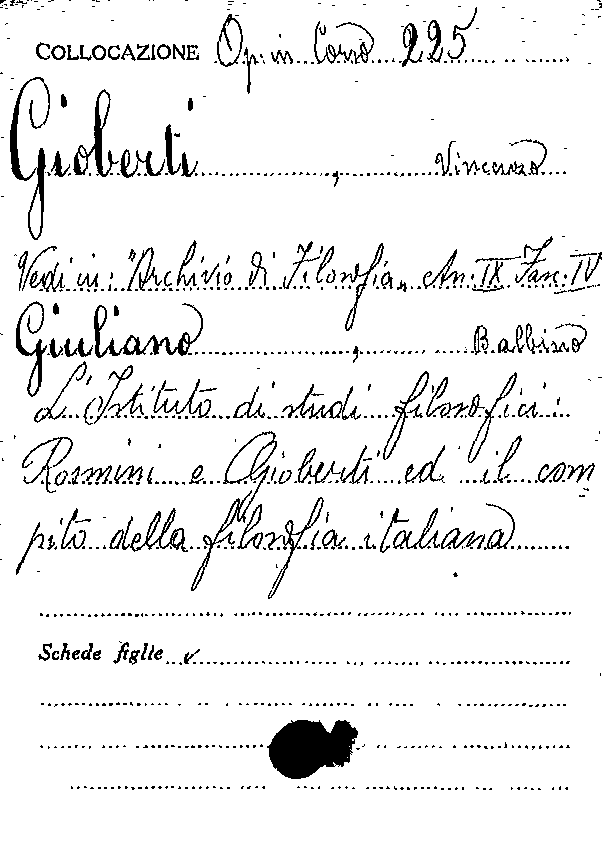 COLLOCAZIONE Op. in Corso 225
Gioberti , Vincenzo
Vedi in: "Archivio di Filosofia" An. IX Fasc. IV
Giuliano , Balbino
L'Istituto di studi filosofici:
Rosmini e Gioberti ed il com
pito della filosofia italiana
Schede figlie